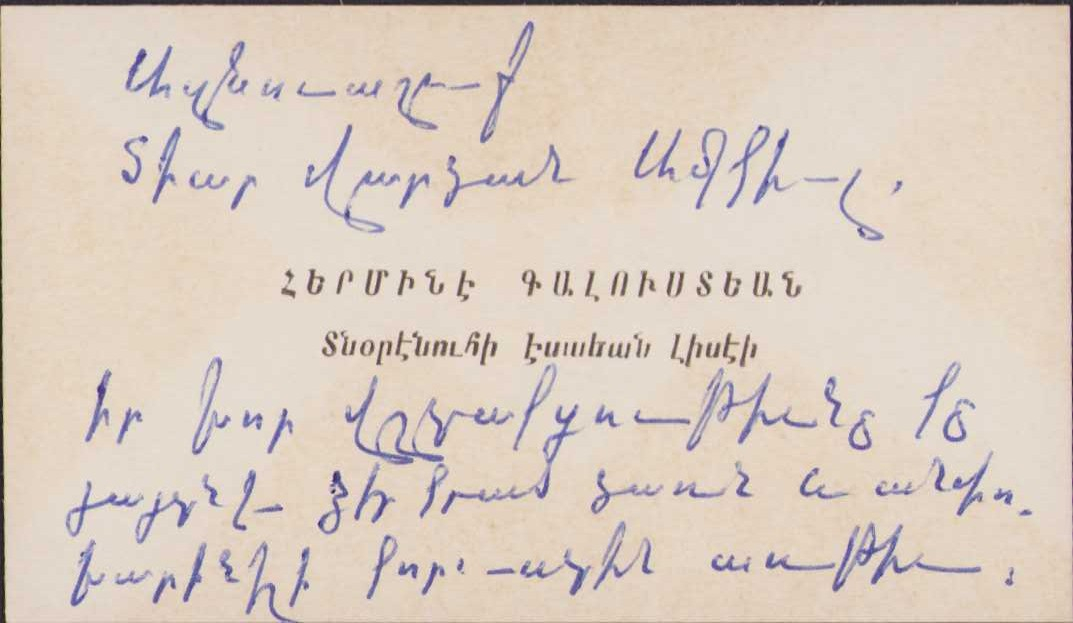 Ազնաւաշուք
Տիար Վարդան
ՀԵՐՄԻՆԷ ԳԱԼՈՒՍՏԵԱՆ
Տնօրէնուհի Էսաեան Լիսէի
Իր խոր վշտակցութիւնը կը
յայտնէ ձեր կրած ցաւին և անփո-
խարինելի կորստեան առթիւ։